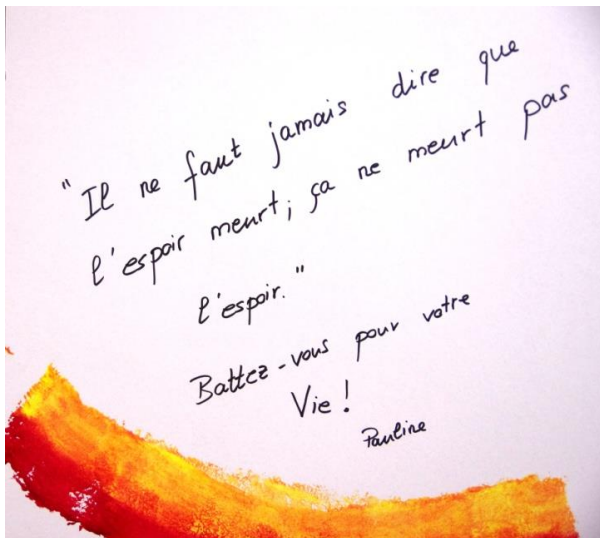 "Il ne faut jamais dire que
l'espoir meurt; ça ne meurt pas
l'espoir."
Battez-vous pour votre
Vie!
Pauline